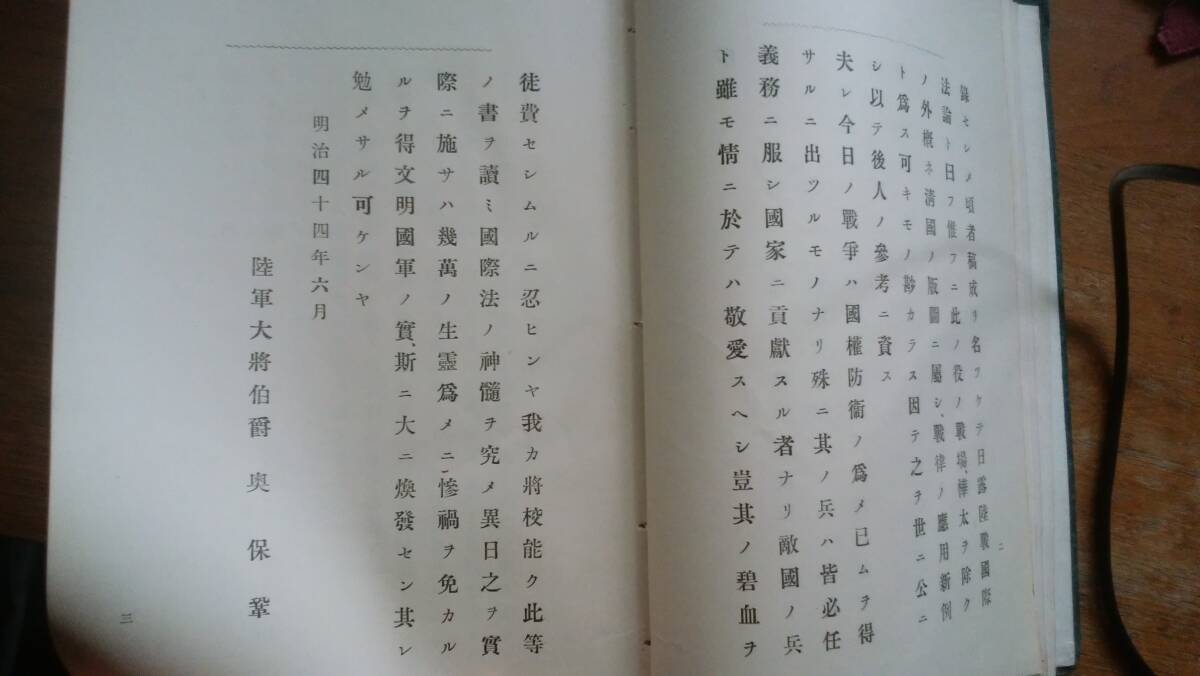 錄セシメ頃者稿成リ名ツケテ日露陸戰國際
法論ト曰フ惟フニ此ノ役ノ戰場、樺太ヲ除ク
ノ外槪ネ淸國ノ版圖ニ屬シ、戰律ノ應用新例
ト爲ス可キモノ尠カラス因テ之ヲ世ニ公ニ
シ以テ後人ノ參考ニ資ス
夫レ今日ノ戰爭ハ國權防衞ノ爲メ已ムヲ得
サルニ出ツルモノナリ殊ニ其ノ兵ハ皆必任
義務ニ服シ國家ニ貢獻スル者ナリ敵國ノ兵
ト雖モ情ニ於テハ敬愛スヘシ豈其ノ碧血ヲ
二
徒費セシムルニ忍ヒンヤ我カ將校能ク此等
ノ書ヲ讀ミ國際法ノ神髓ヲ究メ異日之ヲ實
際ニ施サハ幾萬ノ生靈爲メニ慘禍ヲ免カル
ルヲ得文明國軍ノ實、斯ニ大ニ煥發セン其レ
勉メサル可ケンヤ
明治四十四年六月
陸軍大將伯爵 奧保鞏
三